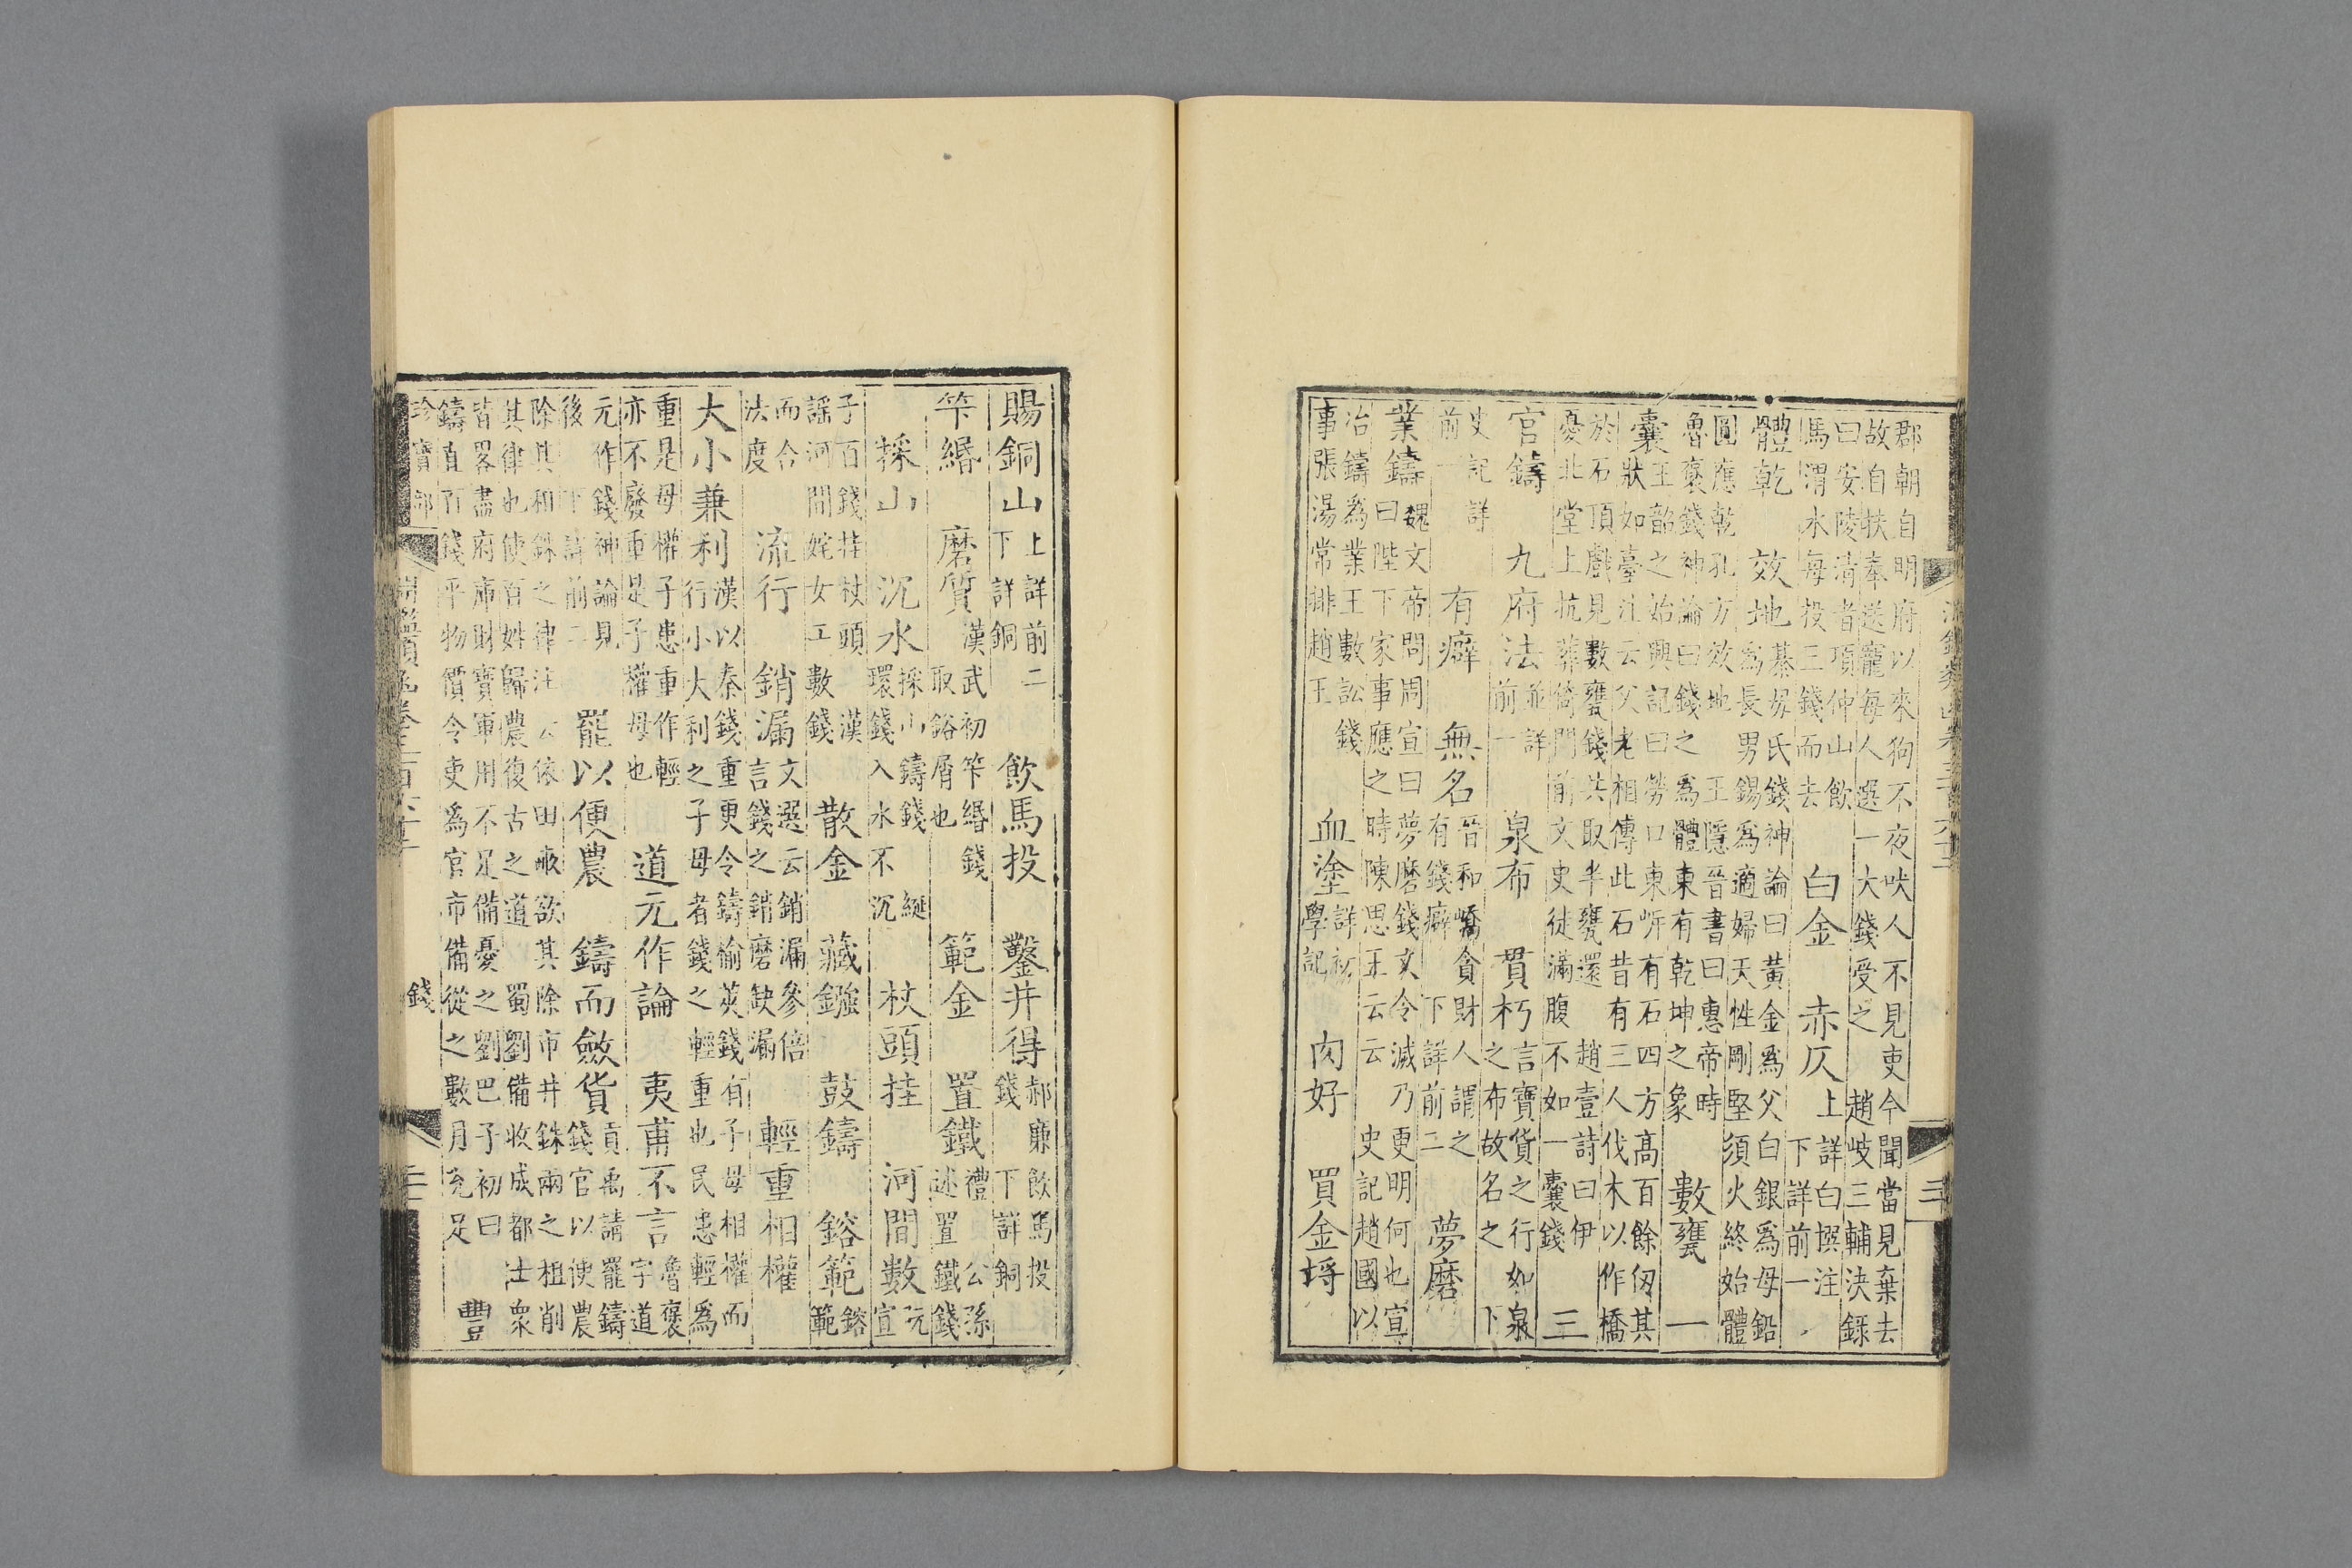 郡朝自明府以來狗不夜吠人不見吏今聞當見棄去
故自扶奉送寵每人選一大錢受之 趙岐三輔決錄
曰安陵清者項仲山飲
馬渭水每投三錢而去 白金 赤仄 上詳白撰注
下詳前一
體乾 效地 綦毋氏錢神論曰黃金為父白銀為母鉛
為長男錫為適婦天性剛堅須火終始體
圓應乾孔方效地 王隱晉書曰惠帝時
魯褒錢神論曰錢之為體東有乾坤之象 數甕 一
囊 王韶之始興記曰勞口東岍有石四方高百餘仞其
狀如臺注云父老相傳此石昔有三人伐木以作橋
於石頂戲見數甕錢共取半甕還 趙壹詩曰伊
憂北堂上抗髒倚門前文史徒滿腹不如一囊錢 三
官鑄 九府法 並詳
前一 泉布 貫朽 言寶貨之行如泉
之布故名之 下
史記詳
前一 有癖 無名 晉和嶠貪財人謂之
有錢癖 下詳前二 夢磨
業鑄 魏文帝問周宣曰夢磨錢文令滅乃更明何也宣
曰陛下家事應之時陳思王云云 史記趙國以
冶鑄為業王數訟錢
事張湯常排趙王 血塗 詳初
學記 肉好 買金埒
三
賜銅山 上詳前二
下詳銅 飲馬投 鑿井得 郝廉飲馬投
錢 下詳銅
筭緡 磨質 漢武初筭緡錢
取鋊屑也 範金 置鐵 禮 公孫
述置鐵錢
採山 沉水 採山鑄錢 綖
環錢入水不沉 杖頭挂 河間數 阮
宣
子百錢挂杖頭 漢
謠河間姹女工數錢 散金 藏鏹 鼓鑄 鎔範 鎔
範
而合
法度 流行 銷漏 文選云銷漏參倍
言錢之銷磨缺漏 輕重相權
大小兼利 漢以秦錢重更令鑄榆莢錢有子母相權而
行小大利之子母者錢之輕重也民患輕為
重是母權子患重作輕
亦不廢重是子權母也 道元作論 夷甫不言 魯褒
字道
元作錢神論見
後 下詳前二 罷以便農 鑄而斂貨 貢禹請罷鑄
錢官以使農
除其和銖之律注云依田畝欲其除市井銖兩之租削
其律也使百姓歸農復古之道 蜀劉備收成都士衆
皆畧盡府庫財寶軍用不足備憂之劉巴子初曰
鑄直百錢平物價令吏為官市備從之數月充足 豐
珍寶部 錢